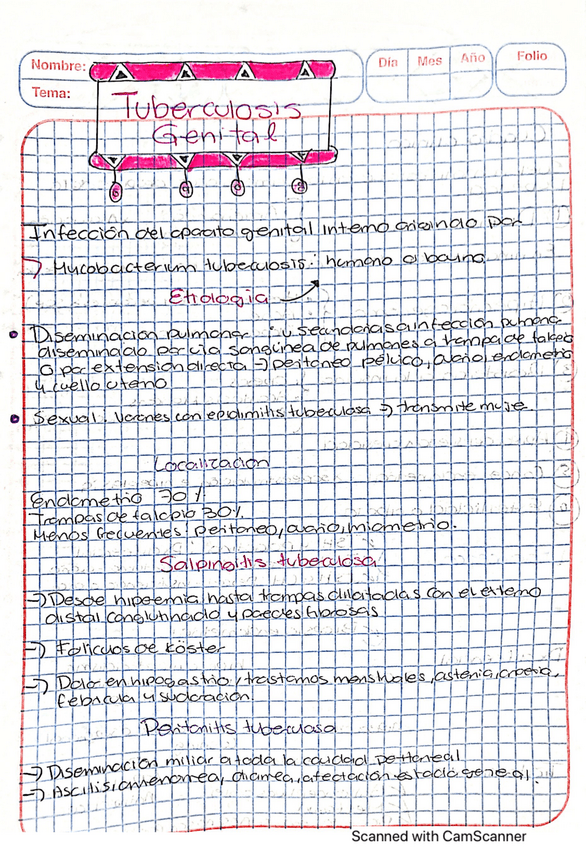 Nombre:
Día Mes Año
Folio
Tema:
Tuberculosis
Genital
Infección del aparato genital interno originado por
Mycobacterium tuberculosis: humano o bovino
Etiología
Diseminación pulmonar: secundarias a infección pulmonar
diseminado por vía sanguínea de pulmones a trompa de falopio
o por extensión directa → peritoneo pélvico, ovario, endometrio
y cuello uterino
Sexual: Varones con epididimitis tuberculosa → transmite mujer
Localización
Endometrio 70%
Trompas de falopio 30%
Menos frecuentes: peritoneo, ovario, miometrio.
Salpingitis tuberculosa
→ Desde hiperemia hasta trompas dilatadas con el extremo
distal conglutinado y paredes fibrosas
→ Folículos de Köster
→ Dolor en hipogastrio, trastornos menstruales, astenia,
febrícula y sudoración.
Peritonitis tuberculosa
→ Diseminación miliar a toda la cavidad peritoneal
→ Ascitis, amenorrea, diarrea, afectación estado general.
Scanned with CamScanner